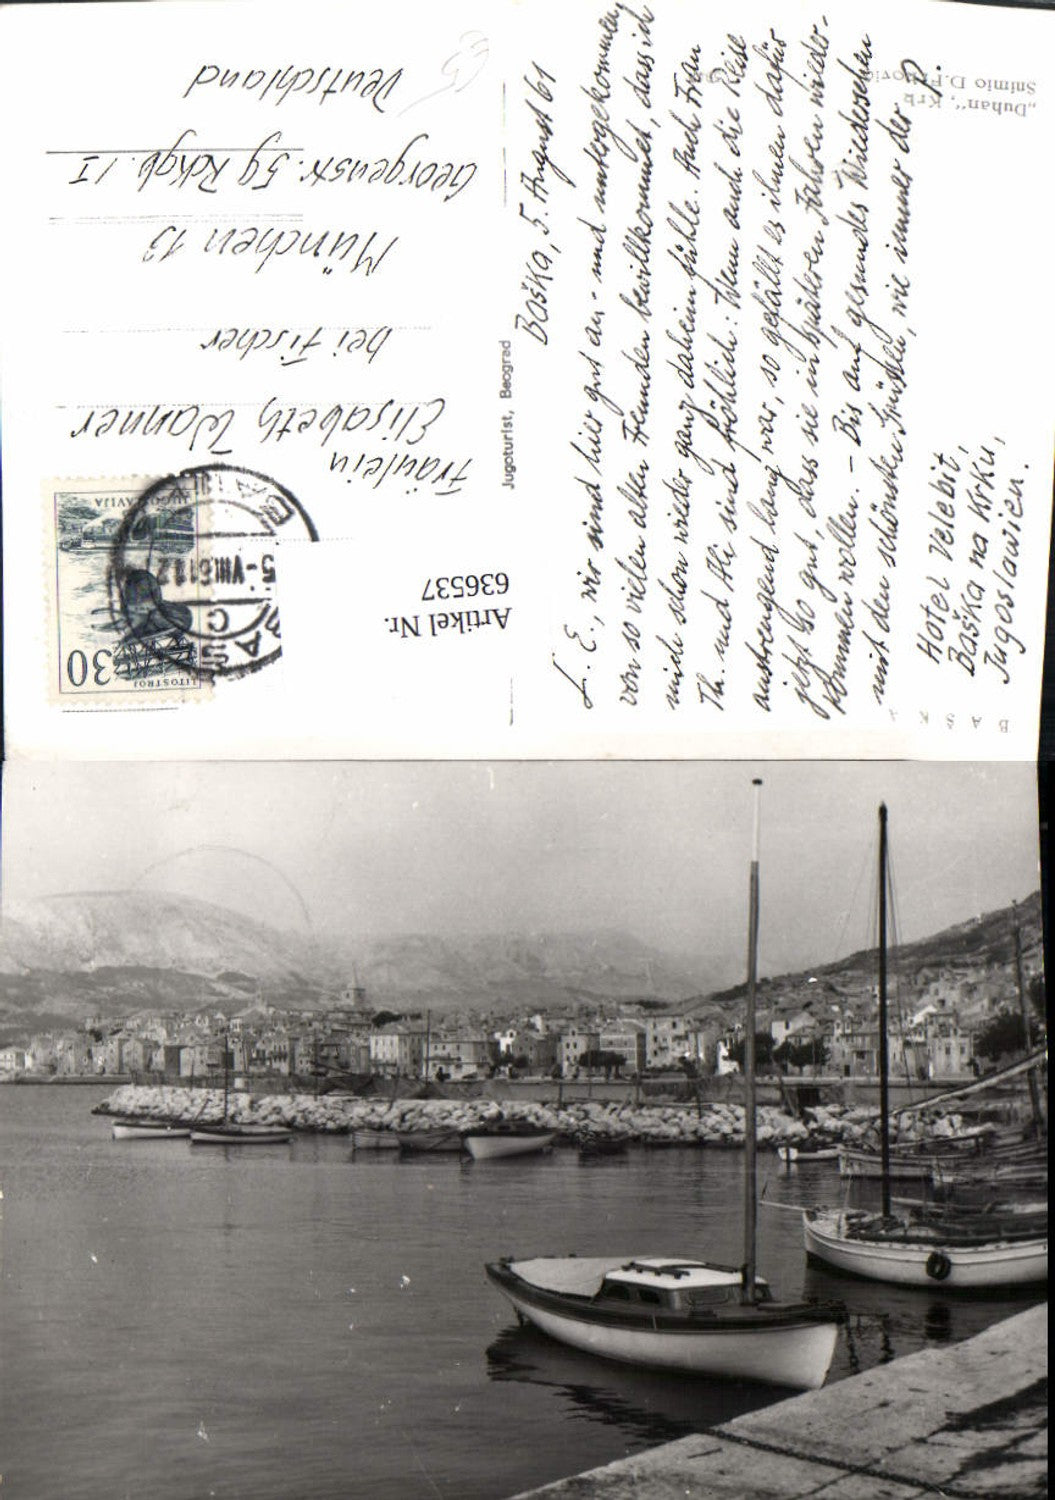 BAŠKA
„Duhan“, Krk
Snimio D.
Baška, 5. August 61
L. E., wir sind hier gut an- und untergekommen,
von so vielen alten Freunden bewillkommnet, dass ich
mich schon wieder ganz daheim fühle. Auch Frau
Th. und Ali sind fröhlich: Wenn auch die Reise
anstrengend lang war, so gefällt es ihnen dafür
jetzt so gut, dass sie in späteren Jahren wieder-
kommen wollen. – Bis auf gesundes Wiedersehen
mit den schönsten Grüßen, wie immer der P.
Hotel Velebit,
Baška na Krku,
Jugoslawien.
Jugoturist, Beograd
JUGOSLAVIJA
30
LITOSTROJ
5-VIII.61
Fräulein
Elisabeth Wanner
bei Fischer
München 13
Georgenstr. 59 Rckgb. II
Deutschland
Artikel Nr.
636537